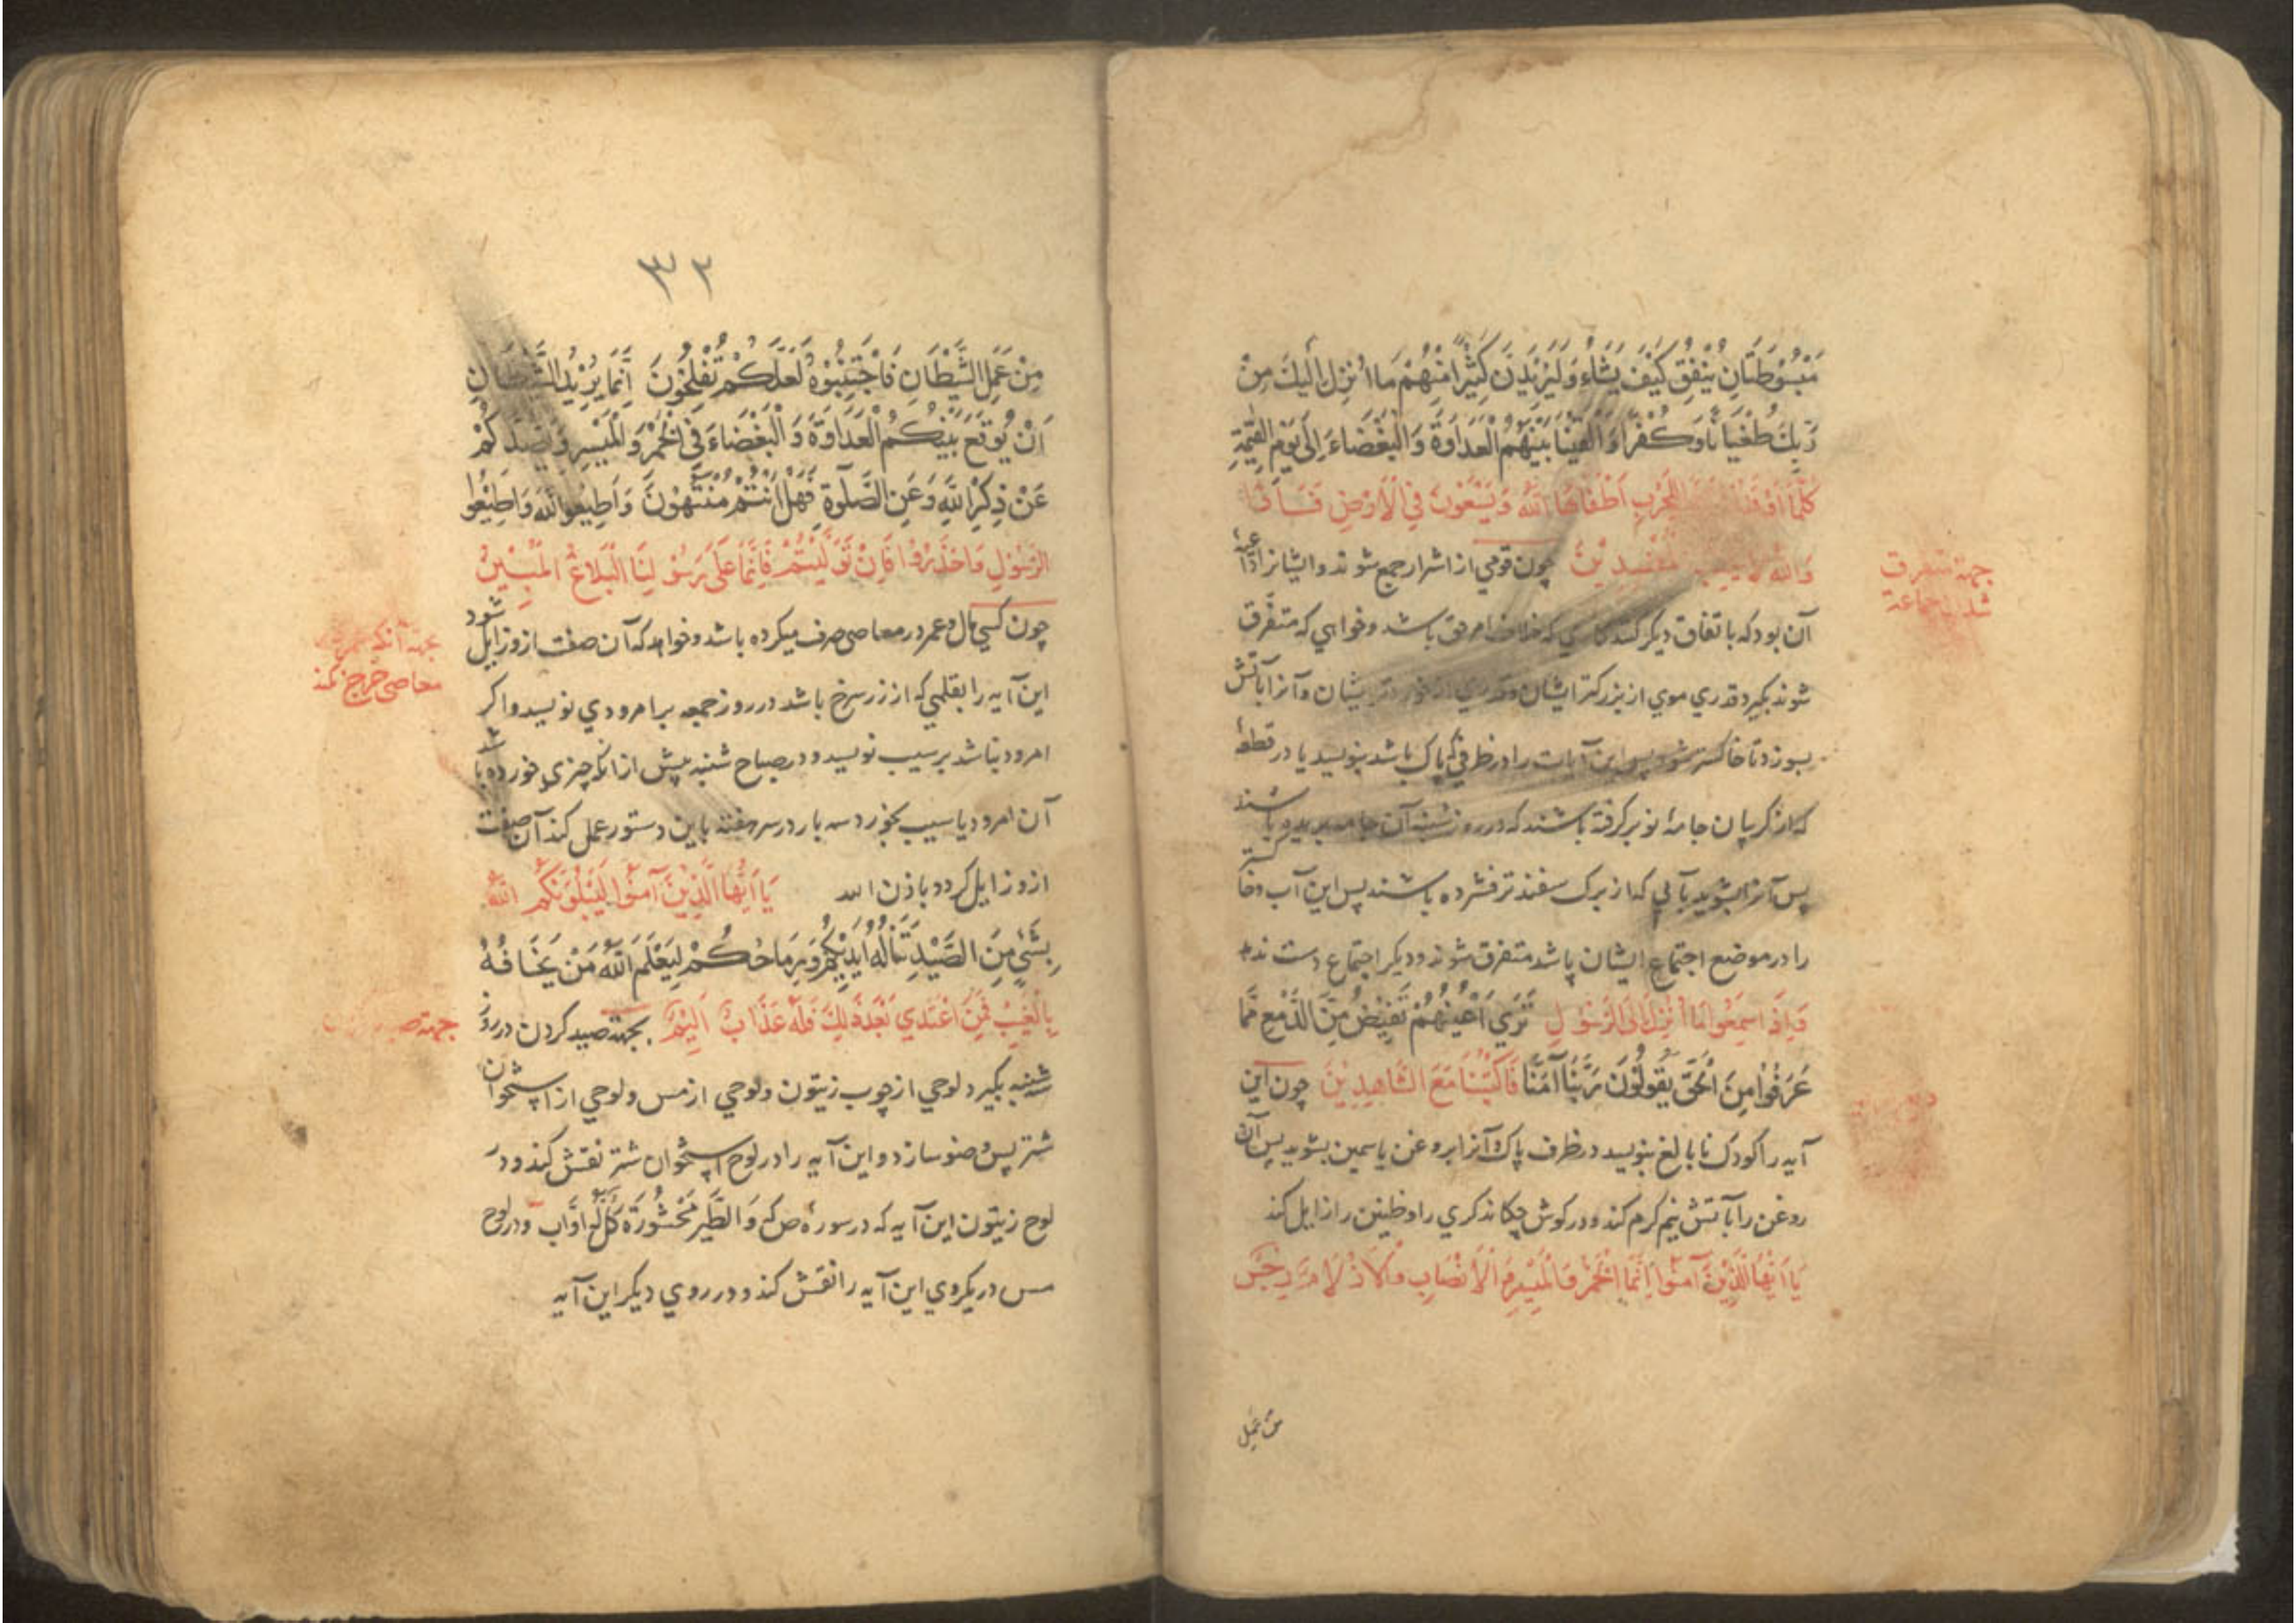 مَبْسُوطَتَانِ يُنْفِقُ كَيْفَ يَشَاءُ وَلَيَزِيدَنَّ كَثِيرًا مِنْهُمْ مَا اُنْزِلَ اِلَيْكَ مِنْ
رَبِّكَ طُغْيَانًا وَكُفْرًا وَاَلْقَيْنَا بَيْنَهُمُ الْعَدَاوَةَ وَالْبَغْضَاءَ اِلَى يَوْمِ الْقِيٰمَةِ
كُلَّمَا اَوْقَدُوا لِلْحَرْبِ اَطْفَاَهَا اللهُ وَيَسْعَوْنَ فِي الْاَرْضِ فَسَادًا
وَاللهُ لَا يُحِبُّ الْمُفْسِدِيْنَ چون قومي از اشرار جمع شوند و ايشانرا
جهة متفرق
شدن جماعة
آن بود كه باتفاق ديكر كنند كاري كه خلاف امر حق باشد و خواهي كه متفرق
شوند بكير د قدري موي از بزركتر ايشان و ايشان و آنرا بآتش
بسوزد تا خاكستر شود پس اين آيات را در ظرفي كه پاك باشد بنويسد يا در قطعهٔ
كه از كريبان جامهٔ نو بر كرفته باشند كه در روز شنبه آن جامه بريده باشند
پس آنرا بشويد بآبي كه از برك سفند تر فشرده باشند پس اين آب و خاكستر
را در موضع اجتماع ايشان پاشد متفرق شوند و ديكر اجتماع دست ندهد
وَاِذَا سَمِعُوا مَا اُنْزِلَ اِلَى الرَّسُوْلِ تَرَي اَعْيُنَهُمْ تَفِيْضُ مِنَ الدَّمْعِ مِمَّا
عَرَفُوا مِنَ الْحَقِّ يَقُولُوْنَ رَبَّنَا آمَنَّا فَاكْتُبْنَا مَعَ الشَّاهِدِيْنَ چون اين
آيه را كودك نا بالغ بنويسد در ظرف پاك و آنرا بروغن ياسمين بشويد پس آن
روغن را بآتش نيم كرم كند و در كوش چكاند كري را و طنين را زايل كند
يَا اَيُّهَا الَّذِيْنَ آمَنُوا اِنَّمَا الْخَمْرُ وَالْمَيْسِرُ وَالْاَنْصَابُ وَالْاَزْلَامُ رِجْسٌ
من عمل
٣٢
مِنْ عَمَلِ الشَّيْطَانِ فَاجْتَنِبُوْهُ لَعَلَّكُمْ تُفْلِحُوْنَ اِنَّمَا يُرِيْدُ الشَّيْطَانُ
اَنْ يُوْقِعَ بَيْنَكُمُ الْعَدَاوَةَ وَالْبَغْضَاءَ فِي الْخَمْرِ وَالْمَيْسِرِ وَيَصُدَّكُمْ
عَنْ ذِكْرِ اللهِ وَعَنِ الصَّلٰوةِ فَهَلْ اَنْتُمْ مُنْتَهُوْنَ وَاَطِيْعُوا اللهَ وَاَطِيْعُوا
الرَّسُوْلَ وَاحْذَرُوْا فَاِنْ تَوَلَّيْتُمْ فَاِنَّمَا عَلَى رَسُوْلِنَا الْبَلَاغُ الْمُبِيْنُ
چون كسي مال و عمر در معاصي صرف ميكرده باشد و خواهد كه آن صفت ازو زايل شود
بجهة آنكه
معاصي خرج نكند
اين آيه را بقلمي كه از زر سرخ باشد در روز جمعه بر امرودي نويسد و اكر
امرود نباشد بر سيب نويسد و در صباح شنبه پيش از انكه چيزي خورده باشد
آن امرود يا سيب بخورد سه بار در سه هفته باين دستور عمل كند آن صفت
ازو زايل كردد باذن الله يَا اَيُّهَا الَّذِيْنَ آمَنُوا لَيَبْلُوَنَّكُمُ اللهُ
بِشَيْءٍ مِنَ الصَّيْدِ تَنَالُهُ اَيْدِيْكُمْ وَرِمَاحُكُمْ لِيَعْلَمَ اللهُ مَنْ يَخَافُهُ
بِالْغَيْبِ فَمَنِ اعْتَدَي بَعْدَ ذٰلِكَ فَلَهُ عَذَابٌ اَلِيْمٌ بجهة صيد كردن در روز
جهة صيد
شنبه بكيرد لوحي از چوب زيتون و لوحي از مس و لوحي از استخوان
شتر پس وضو سازد و اين آيه را در لوح استخوان شتر نقش كند و در
لوح زيتون اين آيه كه در سورهٔ ص كه وَالطَّيْرَ مَحْشُوْرَةً كُلٌّ لَهُ اَوَّاب و در لوح
مس در يكروي اين آيه را نقش كند و در روي ديكر اين آيه